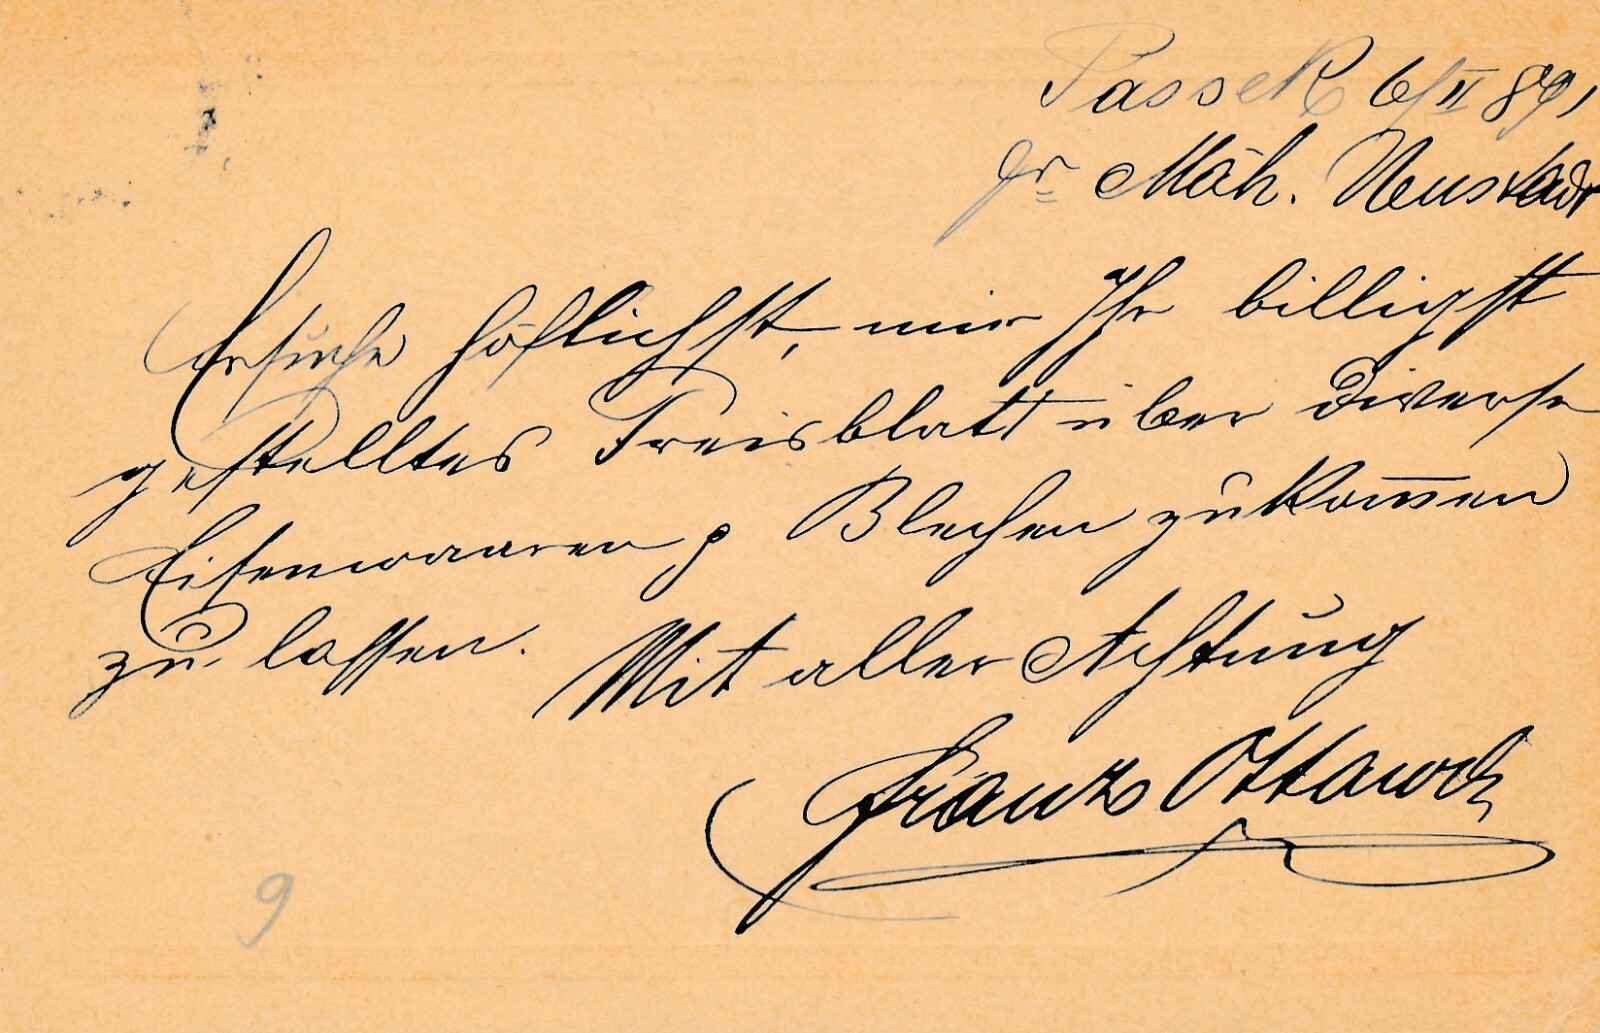 Passek 6/II 89,
pr Mäh. Neustadt
Ersuche höflichst, mir Ihr billigst
gestelltes Preisblatt über diverse
Eisenwaaren p Blechen zukom̅en
zu lassen.
Mit aller Achtung
Franz Ottawa
9